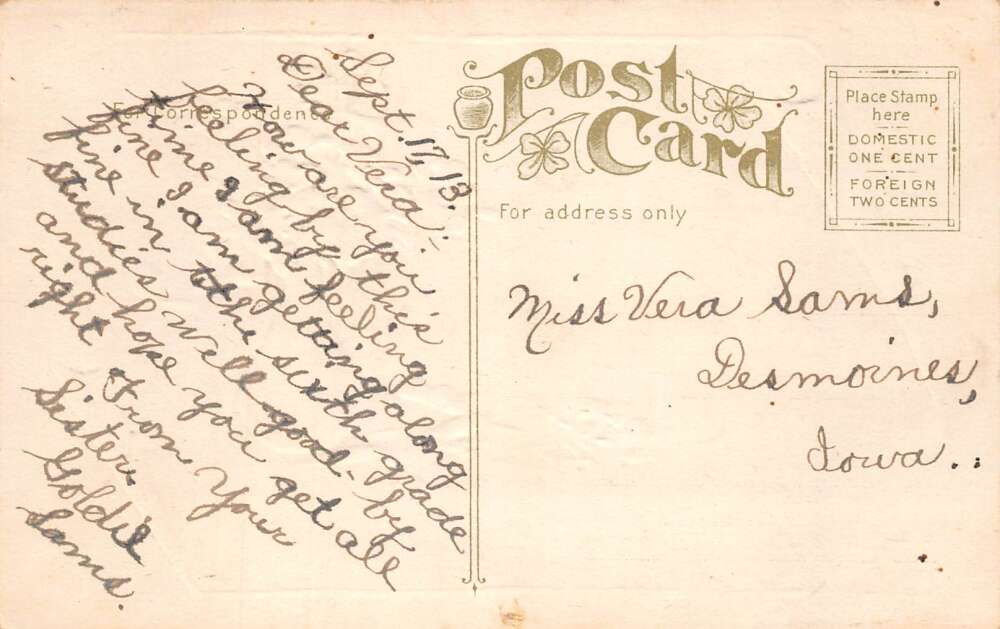 Sept. 17, 13.
Dear Vera:-
How are you
feeling by this
time I am feeling
fine I am getting along
fine in the sixth grade
studies well good-by
and hope you get all
right
From Your
Sister
Goldie
Sams.
For Correspondence
Post
Card
For address only
Place Stamp
here
DOMESTIC
ONE CENT
FOREIGN
TWO CENTS
Miss Vera Sams,
Desmoines,
Iowa..